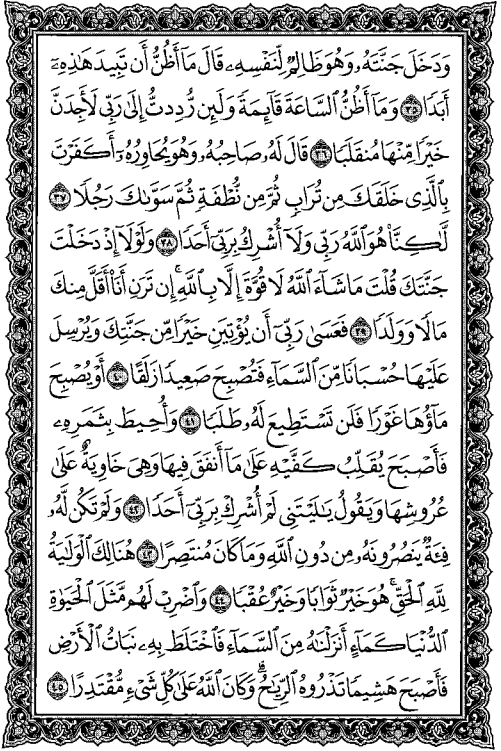 وَدَخَلَ جَنَّتَهُۥ وَهُوَ ظَالِمٞ لِّنَفۡسِهِۦ قَالَ مَآ أَظُنُّ أَن تَبِيدَ هَٰذِهِۦٓ
أَبَدٗا ٣٥ وَمَآ أَظُنُّ ٱلسَّاعَةَ قَآئِمَةٗ وَلَئِن رُّدِدتُّ إِلَىٰ رَبِّي لَأَجِدَنَّ
خَيۡرٗا مِّنۡهَا مُنقَلَبٗا ٣٦ قَالَ لَهُۥ صَاحِبُهُۥ وَهُوَ يُحَاوِرُهُۥٓ أَكَفَرۡتَ
بِٱلَّذِي خَلَقَكَ مِن تُرَابٖ ثُمَّ مِن نُّطۡفَةٖ ثُمَّ سَوَّىٰكَ رَجُلٗا ٣٧
لَّٰكِنَّا۠ هُوَ ٱللَّهُ رَبِّي وَلَآ أُشۡرِكُ بِرَبِّيٓ أَحَدٗا ٣٨ وَلَوۡلَآ إِذۡ دَخَلۡتَ
جَنَّتَكَ قُلۡتَ مَا شَآءَ ٱللَّهُ لَا قُوَّةَ إِلَّا بِٱللَّهِۚ إِن تَرَنِ أَنَا۠ أَقَلَّ مِنكَ
مَالٗا وَوَلَدٗا ٣٩ فَعَسَىٰ رَبِّيٓ أَن يُؤۡتِيَنِ خَيۡرٗا مِّن جَنَّتِكَ وَيُرۡسِلَ
عَلَيۡهَا حُسۡبَانٗا مِّنَ ٱلسَّمَآءِ فَتُصۡبِحَ صَعِيدٗا زَلَقًا ٤٠ أَوۡ يُصۡبِحَ
مَآؤُهَا غَوۡرٗا فَلَن تَسۡتَطِيعَ لَهُۥ طَلَبٗا ٤١ وَأُحِيطَ بِثَمَرِهِۦ
فَأَصۡبَحَ يُقَلِّبُ كَفَّيۡهِ عَلَىٰ مَآ أَنفَقَ فِيهَا وَهِيَ خَاوِيَةٌ عَلَىٰ
عُرُوشِهَا وَيَقُولُ يَٰلَيۡتَنِي لَمۡ أُشۡرِكۡ بِرَبِّيٓ أَحَدٗا ٤٢ وَلَمۡ تَكُن لَّهُۥ
فِئَةٞ يَنصُرُونَهُۥ مِن دُونِ ٱللَّهِ وَمَا كَانَ مُنتَصِرًا ٤٣ هُنَالِكَ ٱلۡوَلَٰيَةُ
لِلَّهِ ٱلۡحَقِّۚ هُوَ خَيۡرٞ ثَوَابٗا وَخَيۡرٌ عُقۡبٗا ٤٤ وَٱضۡرِبۡ لَهُم مَّثَلَ ٱلۡحَيَوٰةِ
ٱلدُّنۡيَا كَمَآءٍ أَنزَلۡنَٰهُ مِنَ ٱلسَّمَآءِ فَٱخۡتَلَطَ بِهِۦ نَبَاتُ ٱلۡأَرۡضِ
فَأَصۡبَحَ هَشِيمٗا تَذۡرُوهُ ٱلرِّيَٰحُۗ وَكَانَ ٱللَّهُ عَلَىٰ كُلِّ شَيۡءٖ مُّقۡتَدِرًا ٤٥